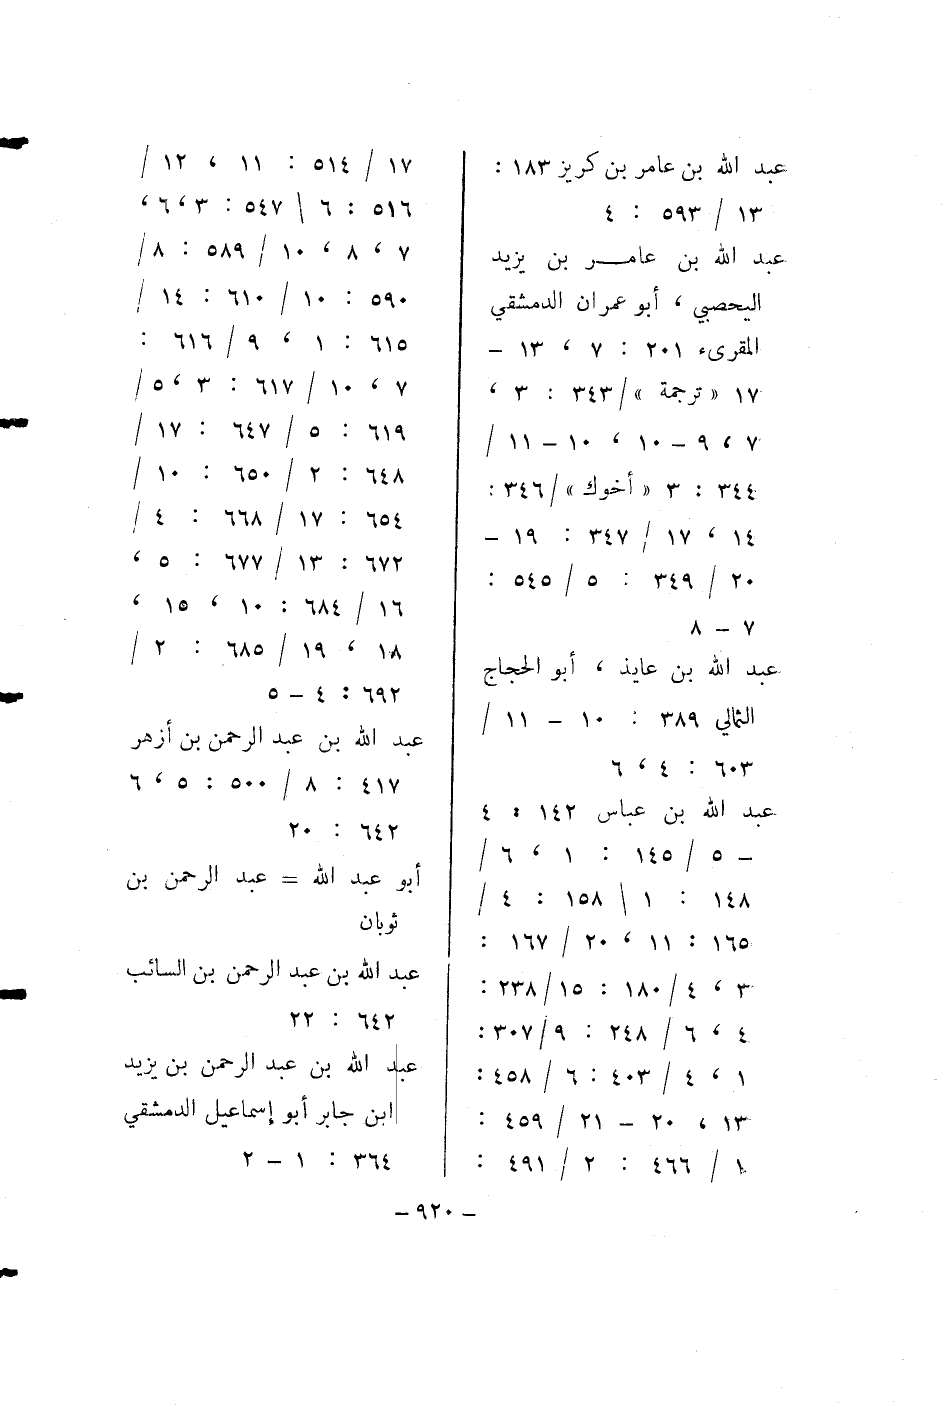 عبد الله بن عامر بن كريز ١٨٣ :
١٣ / ٥٩٣ : ٤
عبد الله بن عامر بن يزيد
اليحصبي ، أبو عمران الدمشقي
المقرىء ٢٠١ : ٧ ، ١٣ –
١٧ « ترجمة » / ٣٤٣ : ٣ ،
٧ ، ٩ – ١٠ ، ١٠ – ١١ /
٣٤٤ : ٣ « أخوك » / ٣٤٦ :
١٤ ، ١٧ / ٣٤٧ : ١٩ –
٢٠ / ٣٤٩ : ٥ / ٥٤٥ :
٧ – ٨
عبد الله بن عايذ ، أبو الحجاج
الثمالي ٣٨٩ : ١٠ – ١١ /
٦٠٣ : ٤ ، ٦
عبد الله بن عباس ١٤٢ : ٤
– ٥ / ١٤٥ : ١ ، ٦ /
١٤٨ : ١ \ ١٥٨ : ٤ /
١٦٥ : ١١ ، ٢٠ / ١٦٧ :
٣ ، ٤ / ١٨٠ : ١٥ / ٢٣٨ :
٤ ، ٦ / ٢٤٨ : ٩ / ٣٠٧ :
١ ، ٤ / ٤٠٣ : ٦ / ٤٥٨ :
١٣ ، ٢٠ – ٢١ / ٤٥٩ :
١ / ٤٦٦ : ٢ / ٤٩١ :
١٧ / ٥١٤ : ١١ ، ١٢ /
٥١٦ : ٦ \ ٥٤٧ : ٣ ، ٦ ،
٧ ، ٨ ، ١٠ / ٥٨٩ : ٨ /
٥٩٠ : ١٠ / ٦١٠ : ١٤ /
٦١٥ : ١ ، ٩ / ٦١٦ :
٧ ، ١٠ / ٦١٧ : ٣ ، ٥ /
٦١٩ : ٥ / ٦٤٧ : ١٧ /
٦٤٨ : ٢ / ٦٥٠ : ١٠ /
٦٥٤ : ١٧ / ٦٦٨ : ٤ /
٦٧٢ : ١٣ / ٦٧٧ : ٥ ،
١٦ / ٦٨٤ : ١٠ ، ١٥ ،
١٨ ، ١٩ / ٦٨٥ : ٢ /
٦٩٢ : ٤ – ٥
عبد الله بن عبد الرحمن بن أزهر
٤١٧ : ٨ / ٥٠٠ : ٥ ، ٦
٦٤٢ : ٢٠
أبو عبد الله = عبد الرحمن بن
ثوبان
عبد الله بن عبد الرحمن بن السائب
٦٤٢ : ٢٢
عبد الله بن عبد الرحمن بن يزيد
ابن جابر أبو إسماعيل الدمشقي
٣٦٤ : ١ – ٢
– ٩٢٠ –